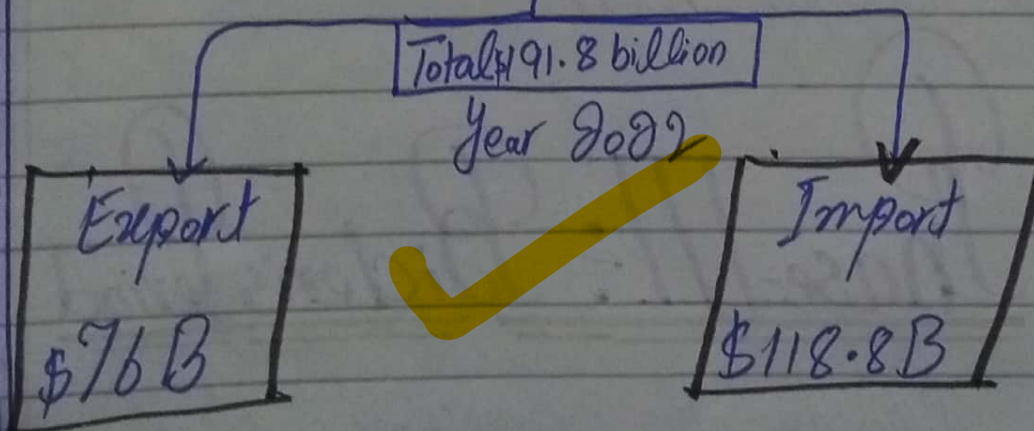 Total $191.8 billion
Year 2022
Export
Import
$76 B
$118.8B